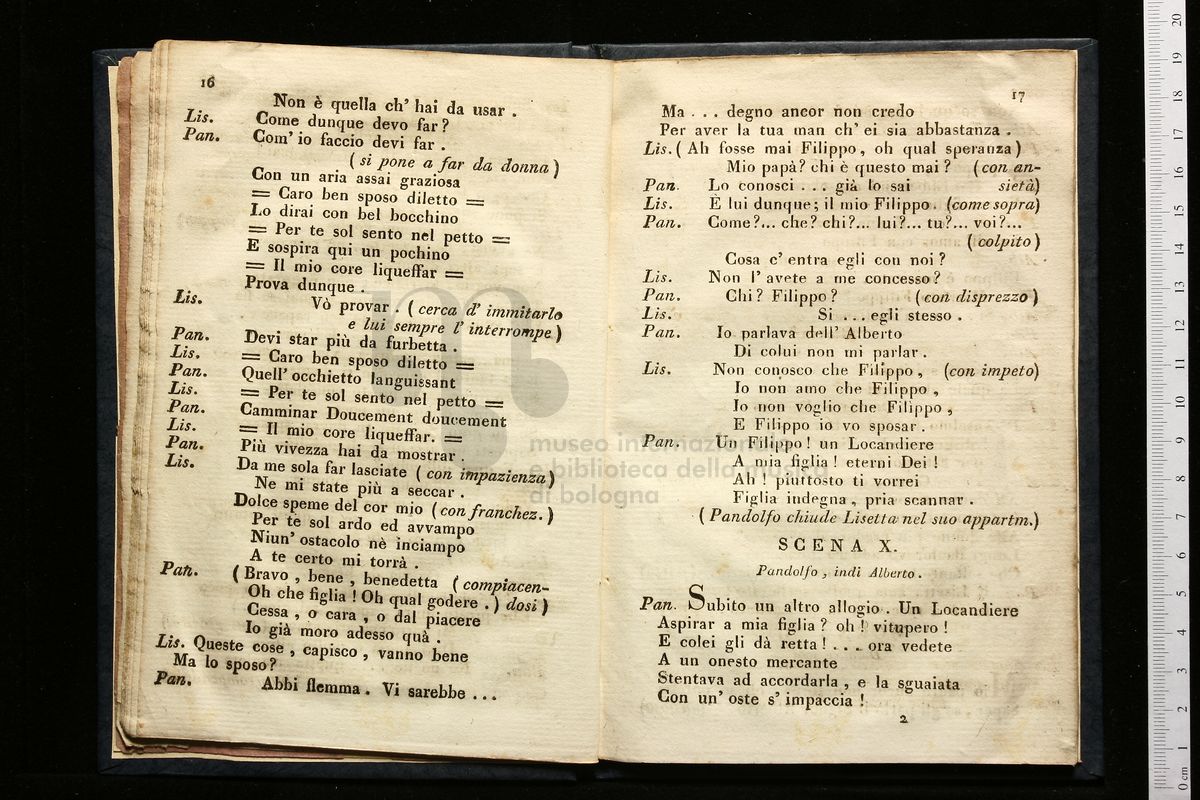 16
Non è quella ch' hai da usar .
Lis. Come dunque devo far ?
Pan. Com' io faccio devi far .
( si pone a far da donna )
Con un aria assai graziosa
= Caro ben sposo diletto =
Lo dirai con bel bocchino
= Per te sol sento nel petto =
E sospira qui un pochino
= Il mio core liqueffar =
Prova dunque .
Lis. Vò provar . ( cerca d' immitarlo
e lui sempre l' interrompe )
Pan. Devi star più da furbetta .
Lis. = Caro ben sposo diletto =
Pan. Quell' occhietto languissant
Lis. = Per te sol sento nel petto =
Pan. Camminar Doucement doucement
Lis. = Il mio core liqueffar. =
Pan. Più vivezza hai da mostrar .
Lis. Da me sola far lasciate ( con impazienza )
Ne mi state più a seccar .
Dolce speme del cor mio ( con franchez. )
Per te sol ardo ed avvampo
Niun' ostacolo nè inciampo
A te certo mi torrà .
Pan. ( Bravo , bene , benedetta ( compiacen-
Oh che figlia ! Oh qual godere . ) dosi )
Cessa , o cara , o dal piacere
Io già moro adesso quà .
Lis. Queste cose , capisco , vanno bene
Ma lo sposo ?
Pan. Abbi flemma . Vi sarebbe ...
17
Ma . . . degno ancor non credo
Per aver la tua man ch' ei sia abbastanza .
Lis. ( Ah fosse mai Filippo , oh qual speranza )
Mio papà ? chi è questo mai ? ( con an-
Pan. Lo conosci . . . già lo sai sietà)
Lis. È lui dunque ; il mio Filippo . (come sopra)
Pan. Come ?... che ? chi ?... lui ?... tu ?... voi ?...
( colpito )
Cosa c' entra egli con noi ?
Lis. Non l' avete a me concesso ?
Pan. Chi ? Filippo ? ( con disprezzo )
Lis. Si . . . egli stesso .
Pan. Io parlava dell' Alberto
Di colui non mi parlar .
Lis. Non conosco che Filippo , (con impeto)
Io non amo che Filippo ,
Io non voglio che Filippo ,
E Filippo io vo sposar .
Pan. Un Filippo ! un Locandiere
A mia figlia ! eterni Dei !
Ah ! piuttosto ti vorrei
Figlia indegna , pria scannar .
( Pandolfo chiude Lisetta nel suo appartm.)
SCENA X.
Pandolfo , indi Alberto .
Pan. Subito un altro allogio . Un Locandiere
Aspirar a mia figlia ? oh ! vitupero !
E colei gli dà retta ! . . . ora vedete
A un onesto mercante
Stentava ad accordarla , e la sguaiata
Con un' oste s' impaccia !
2
museo internazionale
e biblioteca della musica
di bologna